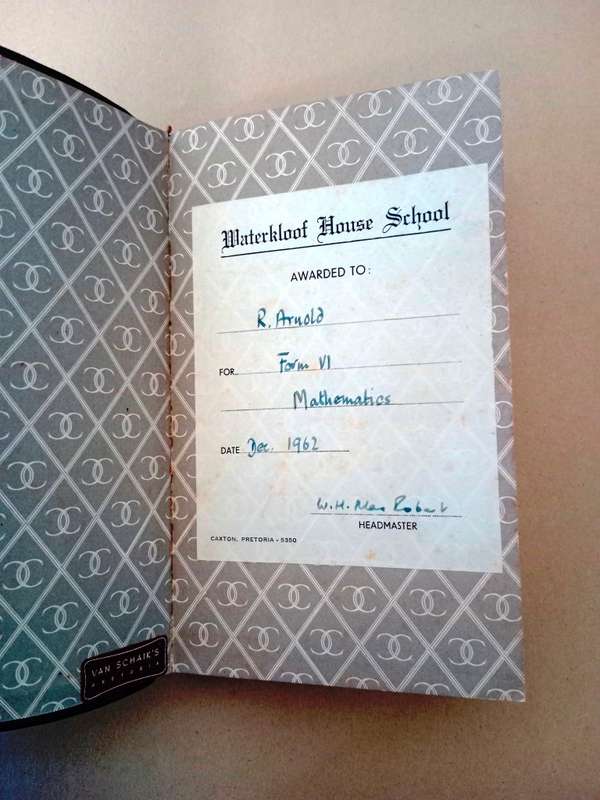 Waterkloof House School
AWARDED TO:
R. Arnold
FOR Form VI
Mathematics
DATE Dec. 1962
W.H. Mac Robert
HEADMASTER
CAXTON, PRETORIA - 5350
VAN SCHAIK'S
PRETORIA